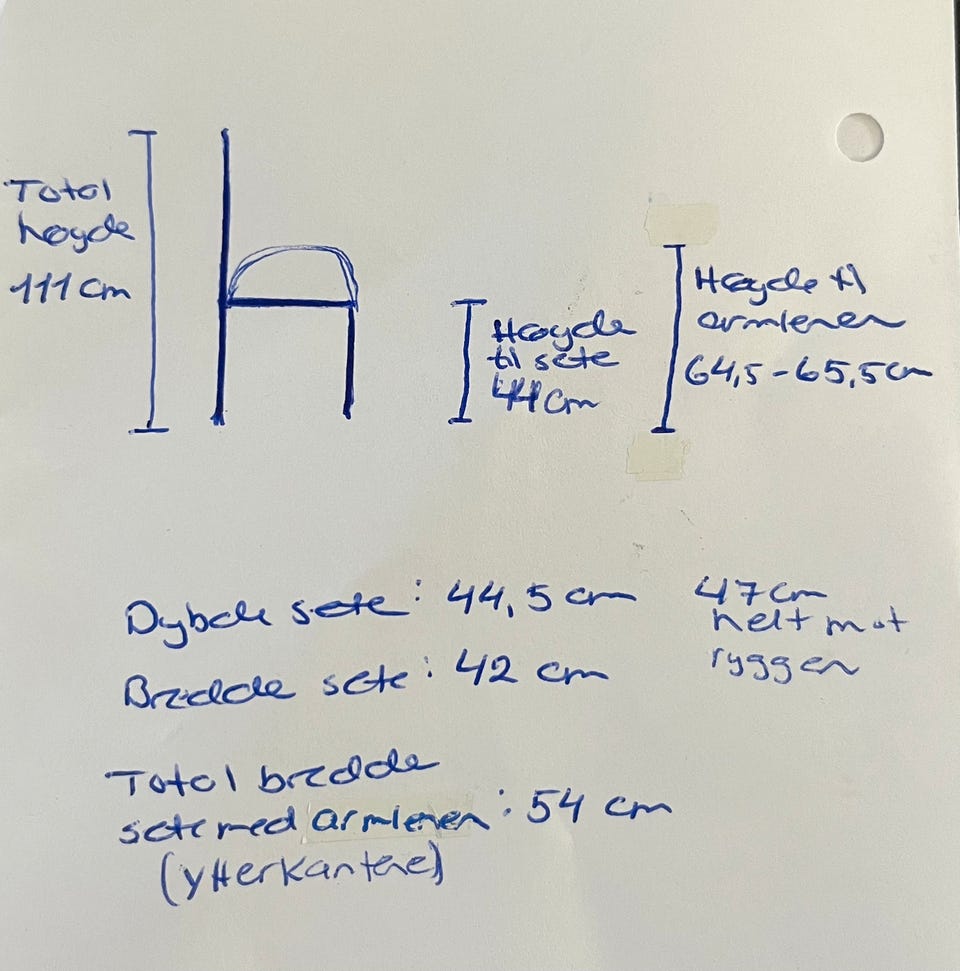 Total
høyde
111 cm
Høyde
til sete
44 cm
Høyde til
armlenen
64,5 - 65,5 cm
Dybde sete: 44,5 cm
47 cm
helt mot
ryggen
Bredde sete: 42 cm
Total bredde
sete med armlenen: 54 cm
(ytterkantene)